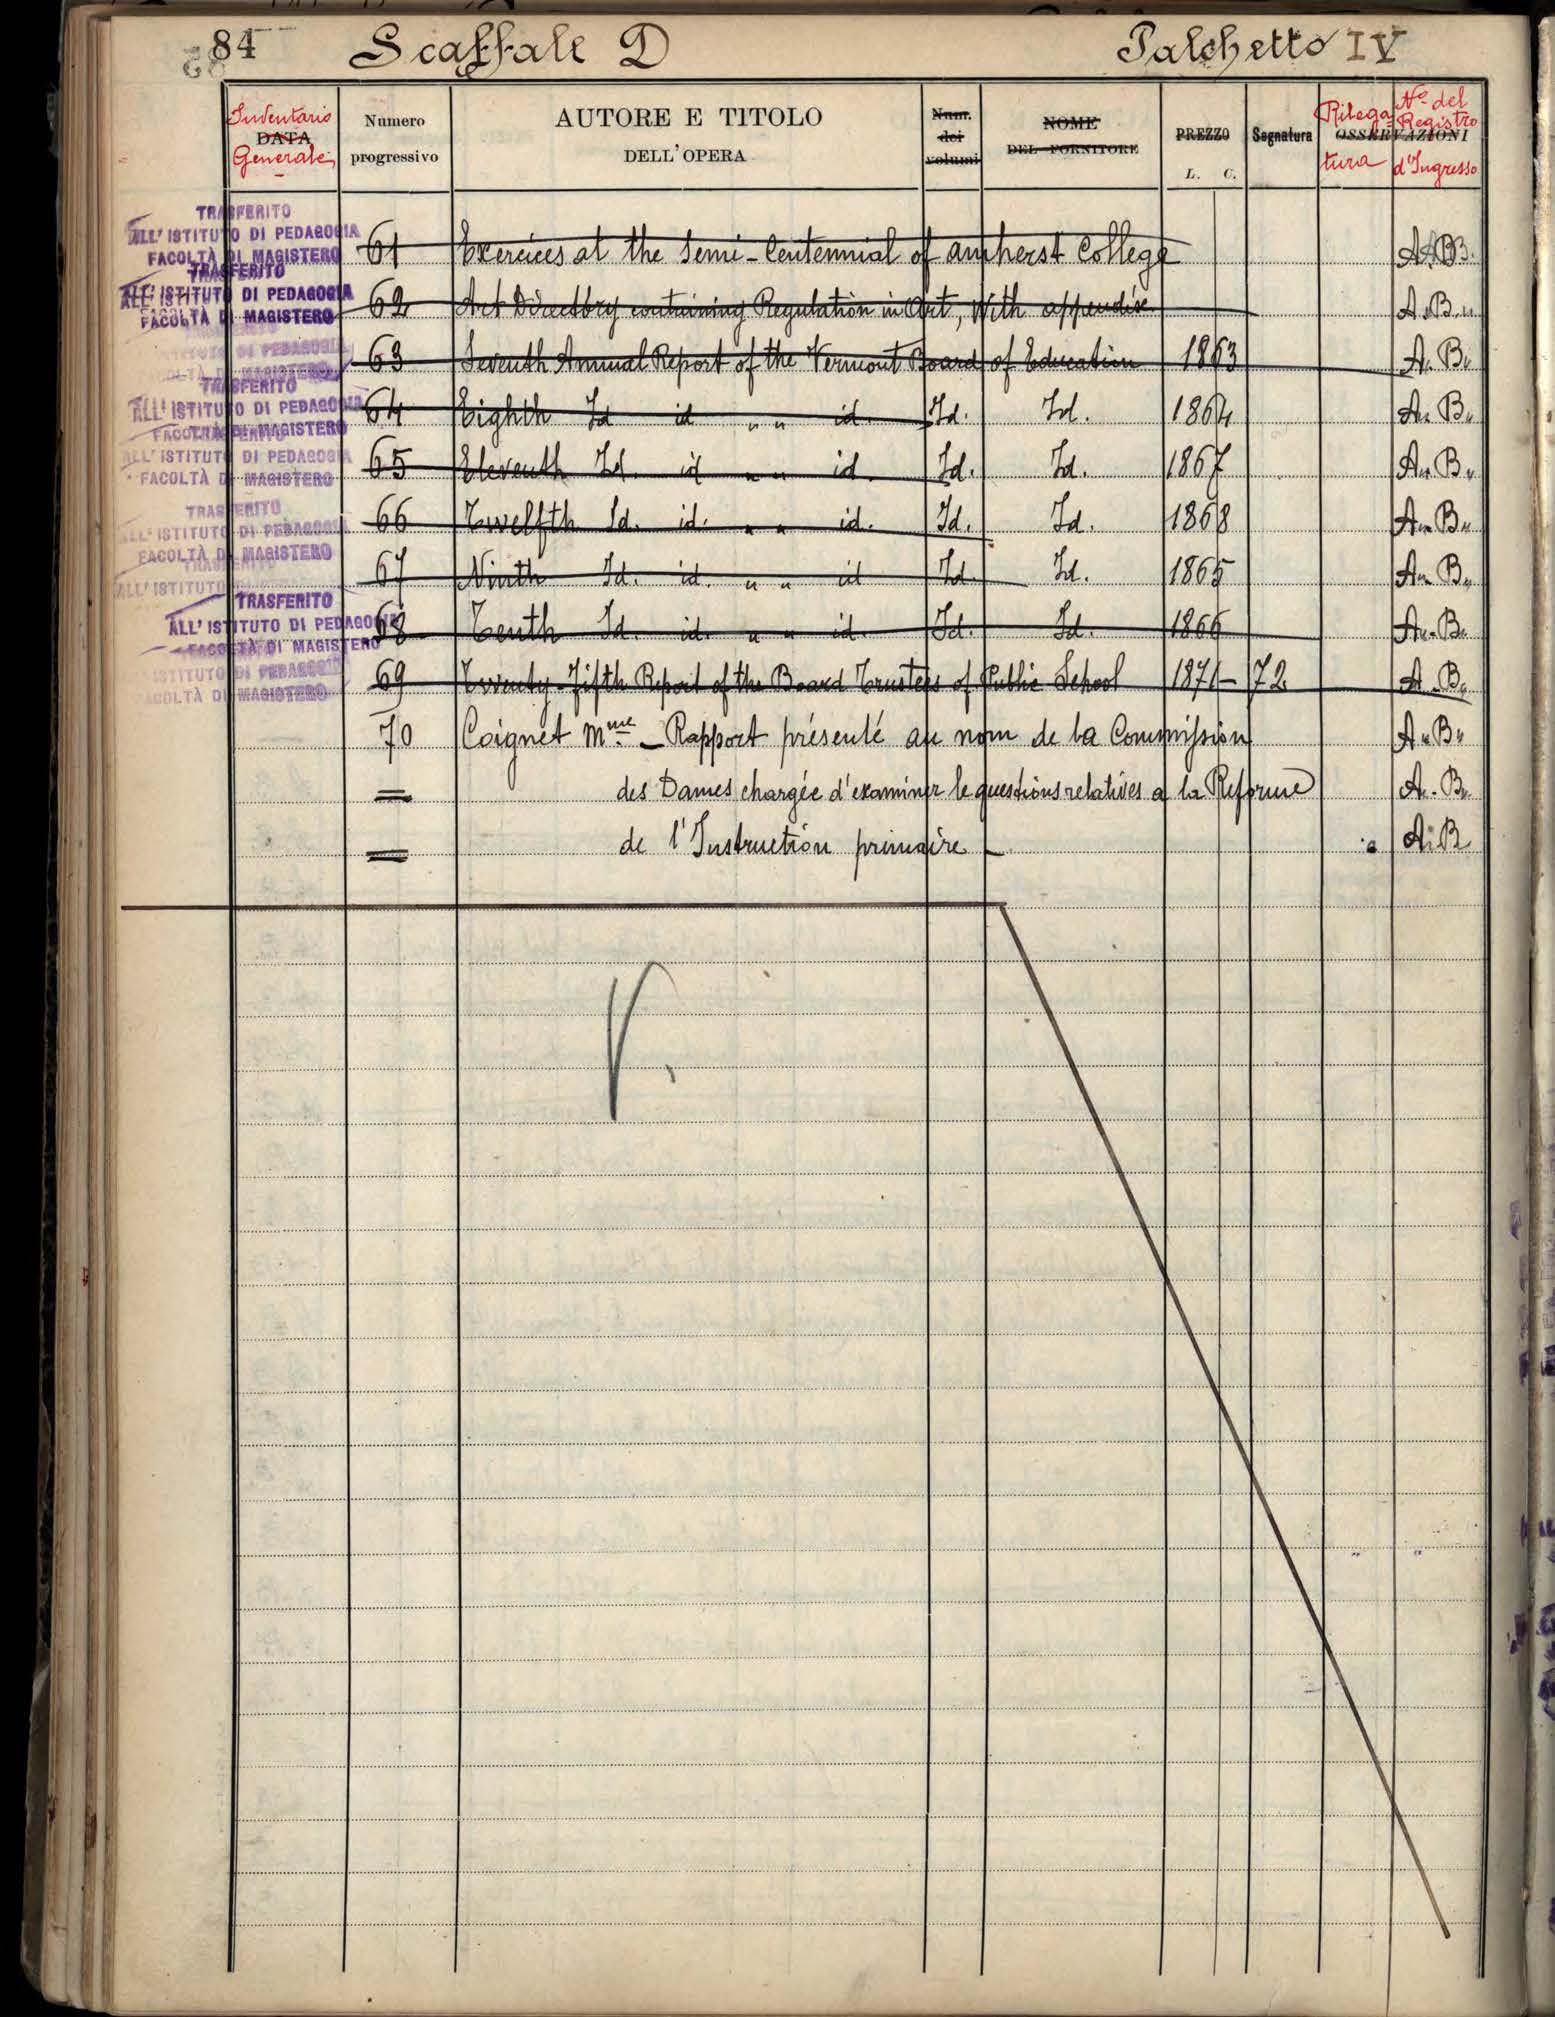 84 Scaffale D Palchetto IV
Inventario DATA Generale
Numero progressivo
AUTORE E TITOLO
DELL'OPERA
Num. dei volumi
NOME
DEL FORNITORE
PREZZO
L. C.
Segnatura
Rilegatura
OSSERVAZIONI
No. del Registro d'Ingresso
TRASFERITO
ALL'ISTITUTO DI PEDAGOGIA
FACOLTÀ DI MAGISTERO
61 Exercices at the Semi-Centennial of amherst College A.B.
TRASFERITO
ALL'ISTITUTO DI PEDAGOGIA
FACOLTÀ DI MAGISTERO
62 Art Directory containing Regulation in Art, With appendix A.B.
ISTITUTO DI PEDAGOGIA
FACOLTÀ DI MAGISTERO
63 Seventh Annual Report of the Vermont Board of Education 1863 A. B.
TRASFERITO
ALL'ISTITUTO DI PEDAGOGIA
FACOLTÀ DI MAGISTERO
64 Eighth Id id " " id. Id. Id. 1864 A. B.
TRASFERITO
ALL'ISTITUTO DI PEDAGOGIA
FACOLTÀ DI MAGISTERO
65 Eleventh Id. id " " id. Id. Id. 1867 A. B.
TRASFERITO
ALL'ISTITUTO DI PEDAGOGIA
FACOLTÀ DI MAGISTERO
66 Twelfth Id. id. " " id. Id. Id. 1868 A. B.
TRASFERITO
ALL'ISTITUTO DI
67 Ninth Id. id. " " id Id. Id. 1865 A. B.
TRASFERITO
ALL'ISTITUTO DI PEDAGOGIA
FACOLTÀ DI MAGISTERO
68 Tenth Id. id. " " id. Id. Id. 1866 A. B.
ISTITUTO DI PEDAGOGIA
FACOLTÀ DI MAGISTERO
69 Twenty-Fifth Report of the Board Trustees of Public School 1871-72 A. B.
70 Coignet Mme. - Rapport présenté au nom de la Commission A. B.
= des Dames chargée d'examiner le questions relatives a la Reforme A. B.
= de l'Instruction primaire - A. B
V.